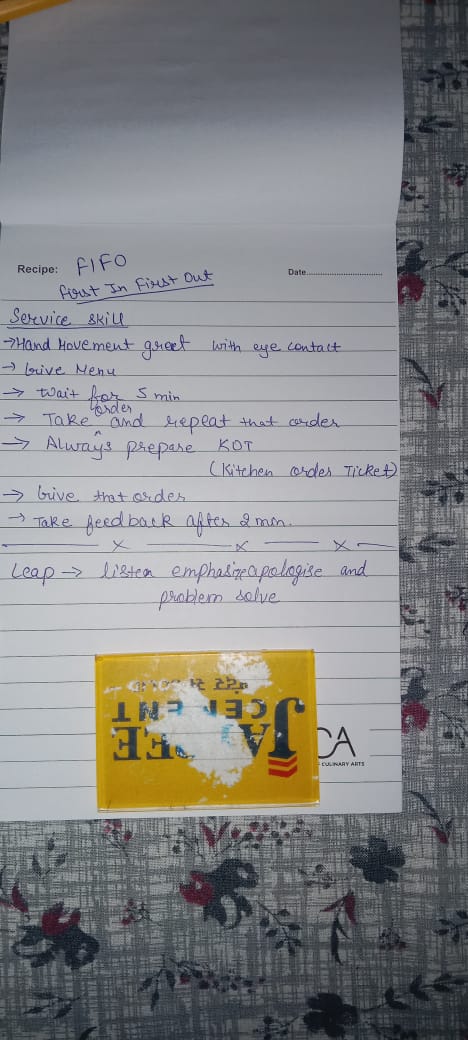 Recipe: FIFO
Date
First In First Out
Service skill
→ Hand Movement greet with eye contact
→ Give Menu
→ Wait for 5 min
→ Take order and repeat that order
→ Always prepare KOT
(Kitchen order Ticket)
→ Give that order
→ Take feedback after 2 min.
x x x
Leap → listen emphasize apologise and
problem solve
CA
CULINARY ARTS